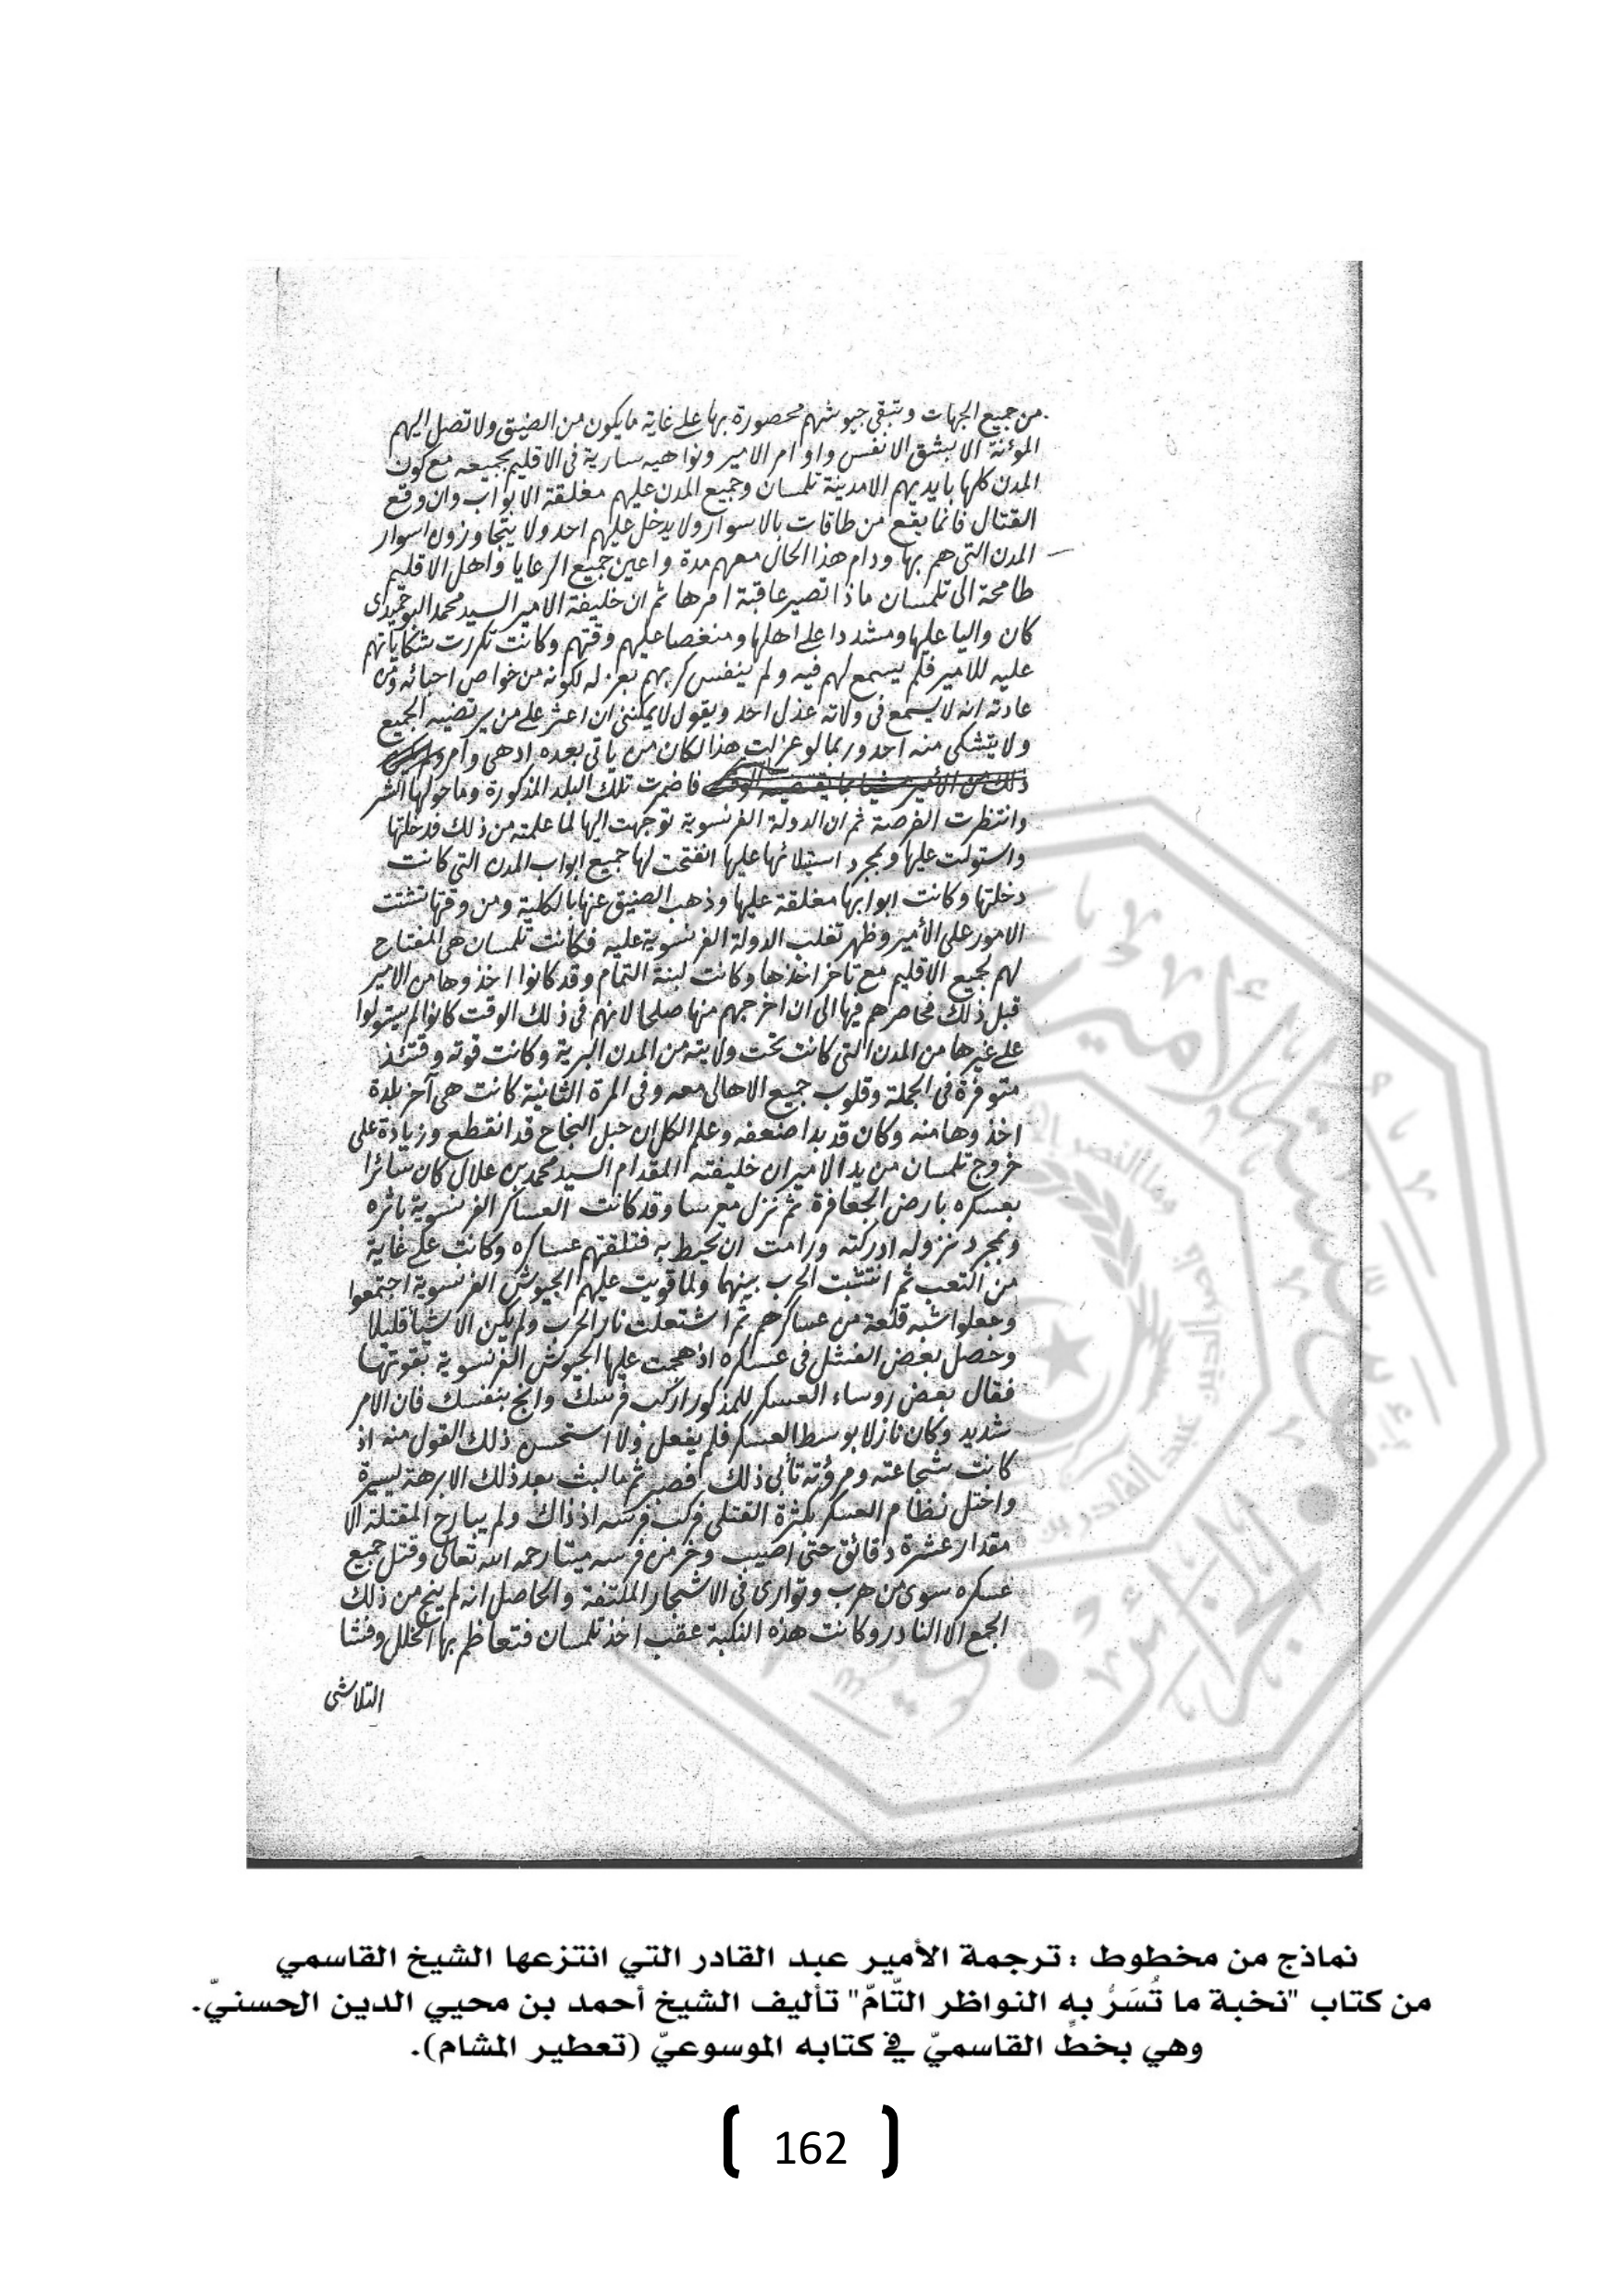 من جميع الجهات وتبقى جيوشهم محصورة بها على غاية ما يكون من الضيق ولا تصل اليهم
المؤنة الا بشق الانفس واوامر الامير ونواهيه سارية فى الاقليم بجميعه مع كون
المدن كلها بايديهم الا مدينة تلمسان وجميع المدن عليهم مغلقة الابواب وان وقع
القتال فانما يقع من طاقات بالاسوار ولا يدخل عليهم احد ولا يتجاوزون اسوار
المدن التى هم بها ودام هذا الحال معهم مدة واعين جميع الرعايا واهل الاقليم
طامحة الى تلمسان ماذا تصير عاقبة امرها ثم ان خليفة الامير السيد محمد البوحميدى
كان واليا عليها ومشددا على اهلها ومنغصا عليهم وقتهم وكانت تكررت شكاياتهم
عليه للامير فلم يسمع لهم فيه ولم ينفس كربهم بعزله لكونه من خواص احبائه ومن
عادته انه لا يسمع فى ولاته عذل احد ويقول لا يمكننى ان اعثر على من يرتضيه الجميع
ولا يتشكى منه احد وربما لو عزلت هذا لكان من ياتى بعده ادهى وامر
ذلك من الأمير شيا بما يقتضيه الوقت فاضمرت تلك البلد المذكورة وما حولها الشر
وانتظرت الفرصة ثم ان الدولة الفرنسوية توجهت اليها لما علمته من ذلك فدخلتها
واستولت عليها وبمجرد استيلائها عليها انفتحت لها جميع ابواب المدن التى كانت
دخلتها وكانت ابوابها مغلقة عليها وذهب الضيق عنها بالكلية ومن وقتها تشتت
الامور على الأمير وظهر تغلب الدولة الفرنسوية عليه فكانت تلمسان هى المفتاح
لهم لجميع الاقليم مع تاخر اخذها وكانت لبنة التمام وقد كانوا اخذوها من الامير
قبل ذلك فحاصرهم فيها الى ان اخرجهم منها صلحا لانهم فى ذلك الوقت كانوا لم يستولوا
على غيرها من المدن التى كانت تحت ولايته من المدن البرية وكانت قوته وقتئذ
متوفرة فى الجملة وقلوب جميع الاهالى معه وفى المرة الثانية كانت هى آخر بلدة
اخذوها منه وكان قد بدا ضعفه وعلم الكل ان حبل النجاح قد انقطع وزيادة على
خروج تلمسان من يد الامير ان خليفته المقدام السيد محمد بن علال كان سائرا
بعسكره بارض الجعافرة ثم نزل معرسا وقد كانت العساكر الفرنسوية باثره
وبمجرد نزوله ادركته ورامت ان تحيط به فتلقتهم عساكره وكانت على غاية
من التعب ثم انتشبت الحرب بينهما ولما قويت عليهم الجيوش الفرنسوية اجتمعوا
وجعلوا شبه قلعة من عساكرهم ثم اشتعلت نار الحرب ولم يكن الا شيا قليلا
وحصل بعض الفشل فى عسكره اذ هجمت عليها الجيوش الفرنسوية بقوتها
فقال بعض روساء العسكر للمذكور اركب فرسك وانج بنفسك فان الامر
شديد وكان نازلا بوسط العسكر فلم يفعل ولا استحسن ذلك القول منه اذ
كانت شجاعته ومروئته تأبى ذلك فصبر ثم ما لبث بعد ذلك الا برهة يسيرة
واختل نظام العسكر بكثرة القتلى فركب فرسه اذ ذاك ولم يبارح المقتلة الا
مقدار عشرة دقائق حتى اصيب وخر من فرسه ميتا رحمه الله تعالى وقتل جميع
عسكره سوى من هرب وتوارى فى الاشجار الملتفة والحاصل انه لم ينج من ذلك
الجمع الا النادر وكانت هذه النكبة عقب اخذ تلمسان فتعاظم بها الخلل وفشا
التلاشى
نماذج من مخطوط : ترجمة الأمير عبد القادر التي انتزعها الشيخ القاسمي
من كتاب "نخبة ما تُسَرُّ به النواظر التّامّ" تأليف الشيخ أحمد بن محيي الدين الحسنيّ.
وهي بخطّ القاسميّ في كتابه الموسوعيّ (تعطير المشام).
162